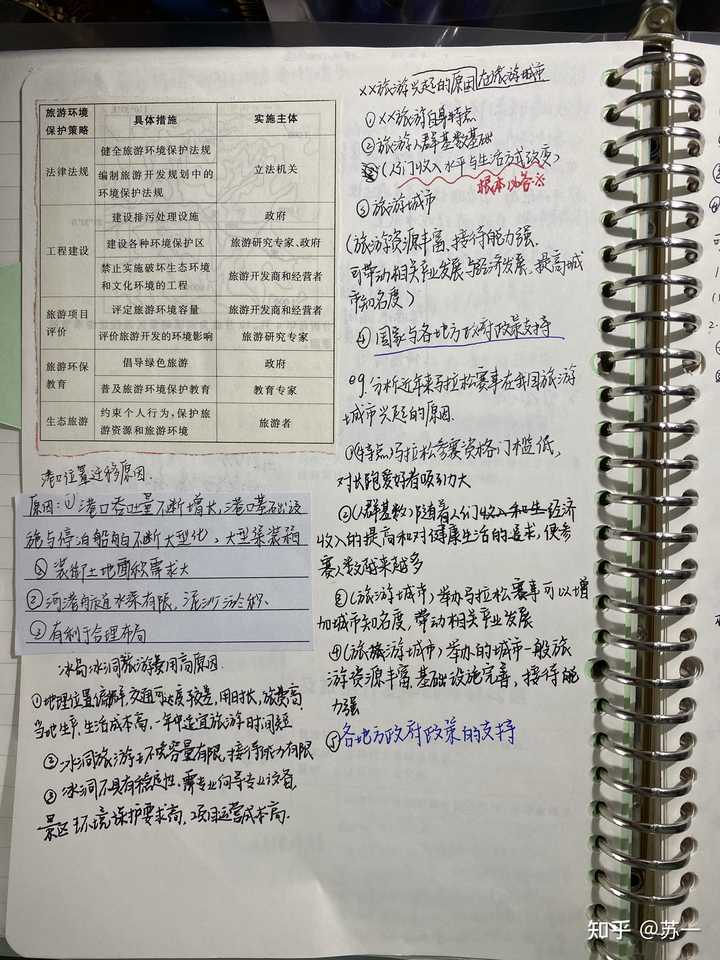 旅游环境保护策略 具体措施 实施主体
法律法规 健全旅游环境保护法规 立法机关
编制旅游开发规划中的环境保护法规
工程建设 建设排污处理设施 政府
建设各种环境保护区 旅游研究专家、政府
禁止实施破坏生态环境和文化环境的工程 旅游开发商和经营者
旅游项目评价 评定旅游环境容量 旅游开发商和经营者
评价旅游开发的环境影响 旅游研究专家
旅游环保教育 倡导绿色旅游 政府
普及旅游环境保护教育 教育专家
生态旅游 约束个人行为,保护旅游资源和旅游环境 旅游者
港口位置迁移原因.
原因:① 港口吞吐量不断增大,港口基础设
施与停泊船舶不断大型化、大型集装箱
装卸土地面积需求大
②河港航道水深有限,泥沙淤积、
③有利于合理布局
冰岛冰洞旅游费用高原因.
①地理位置偏僻,交通可达度较差,用时长,旅费高,
当地生产,生活成本高,一年中适宜旅游时间短
②冰洞旅游环境容量有限,接待能力有限
③冰洞不具有稳定性,需专业向导专业设备,
景区环境保护要求高,项目运营成本高.
XX旅游兴起的原因在旅游城市
①XX旅游自身特点
②旅游人群基数基础
(人们收入水平与生活方式改变)
③旅游城市
(旅游资源丰富、接待能力强、
可带动相关产业发展与经济发展、提高城
市知名度)
④国家与各地方政府政策支持
eg.分析近年来马拉松赛事在我国旅游
城市兴起的原因.
①(特点)马拉松参赛资格门槛低,
对长跑爱好者吸引力大
②(人群基数)随着人们经济
收入的提高和对健康生活的追求,使参
赛人数越来越多
③(旅游城市)举办马拉松赛事可以增
加城市知名度,带动相关产业发展
④(旅游城市)举办的城市一般旅
游资源丰富,基础设施完善,接待能
力强
⑤各地方政府政策的支持
知乎 @苏一